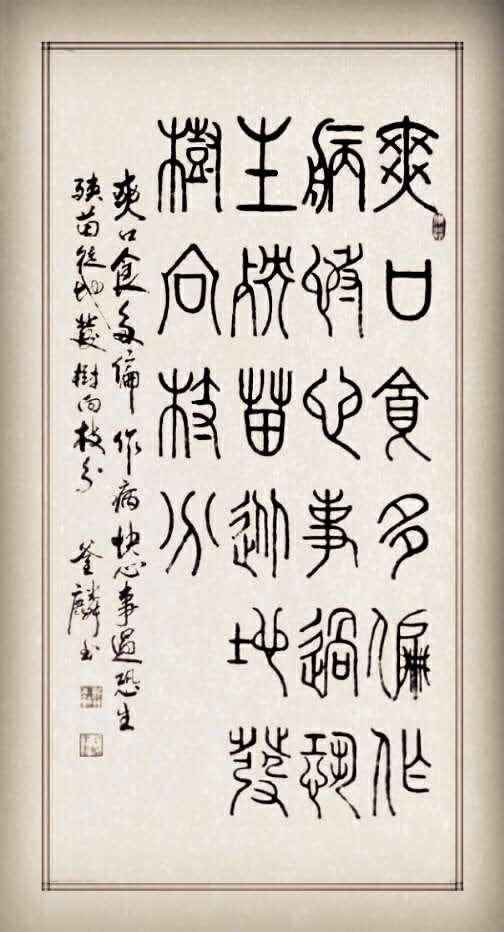 爽口貪多偏作
病快心事過恐
生殃苗從地發
樹向枝分
爽口食多偏作病快心事過恐生
殃苗從地發樹向枝分 麟书